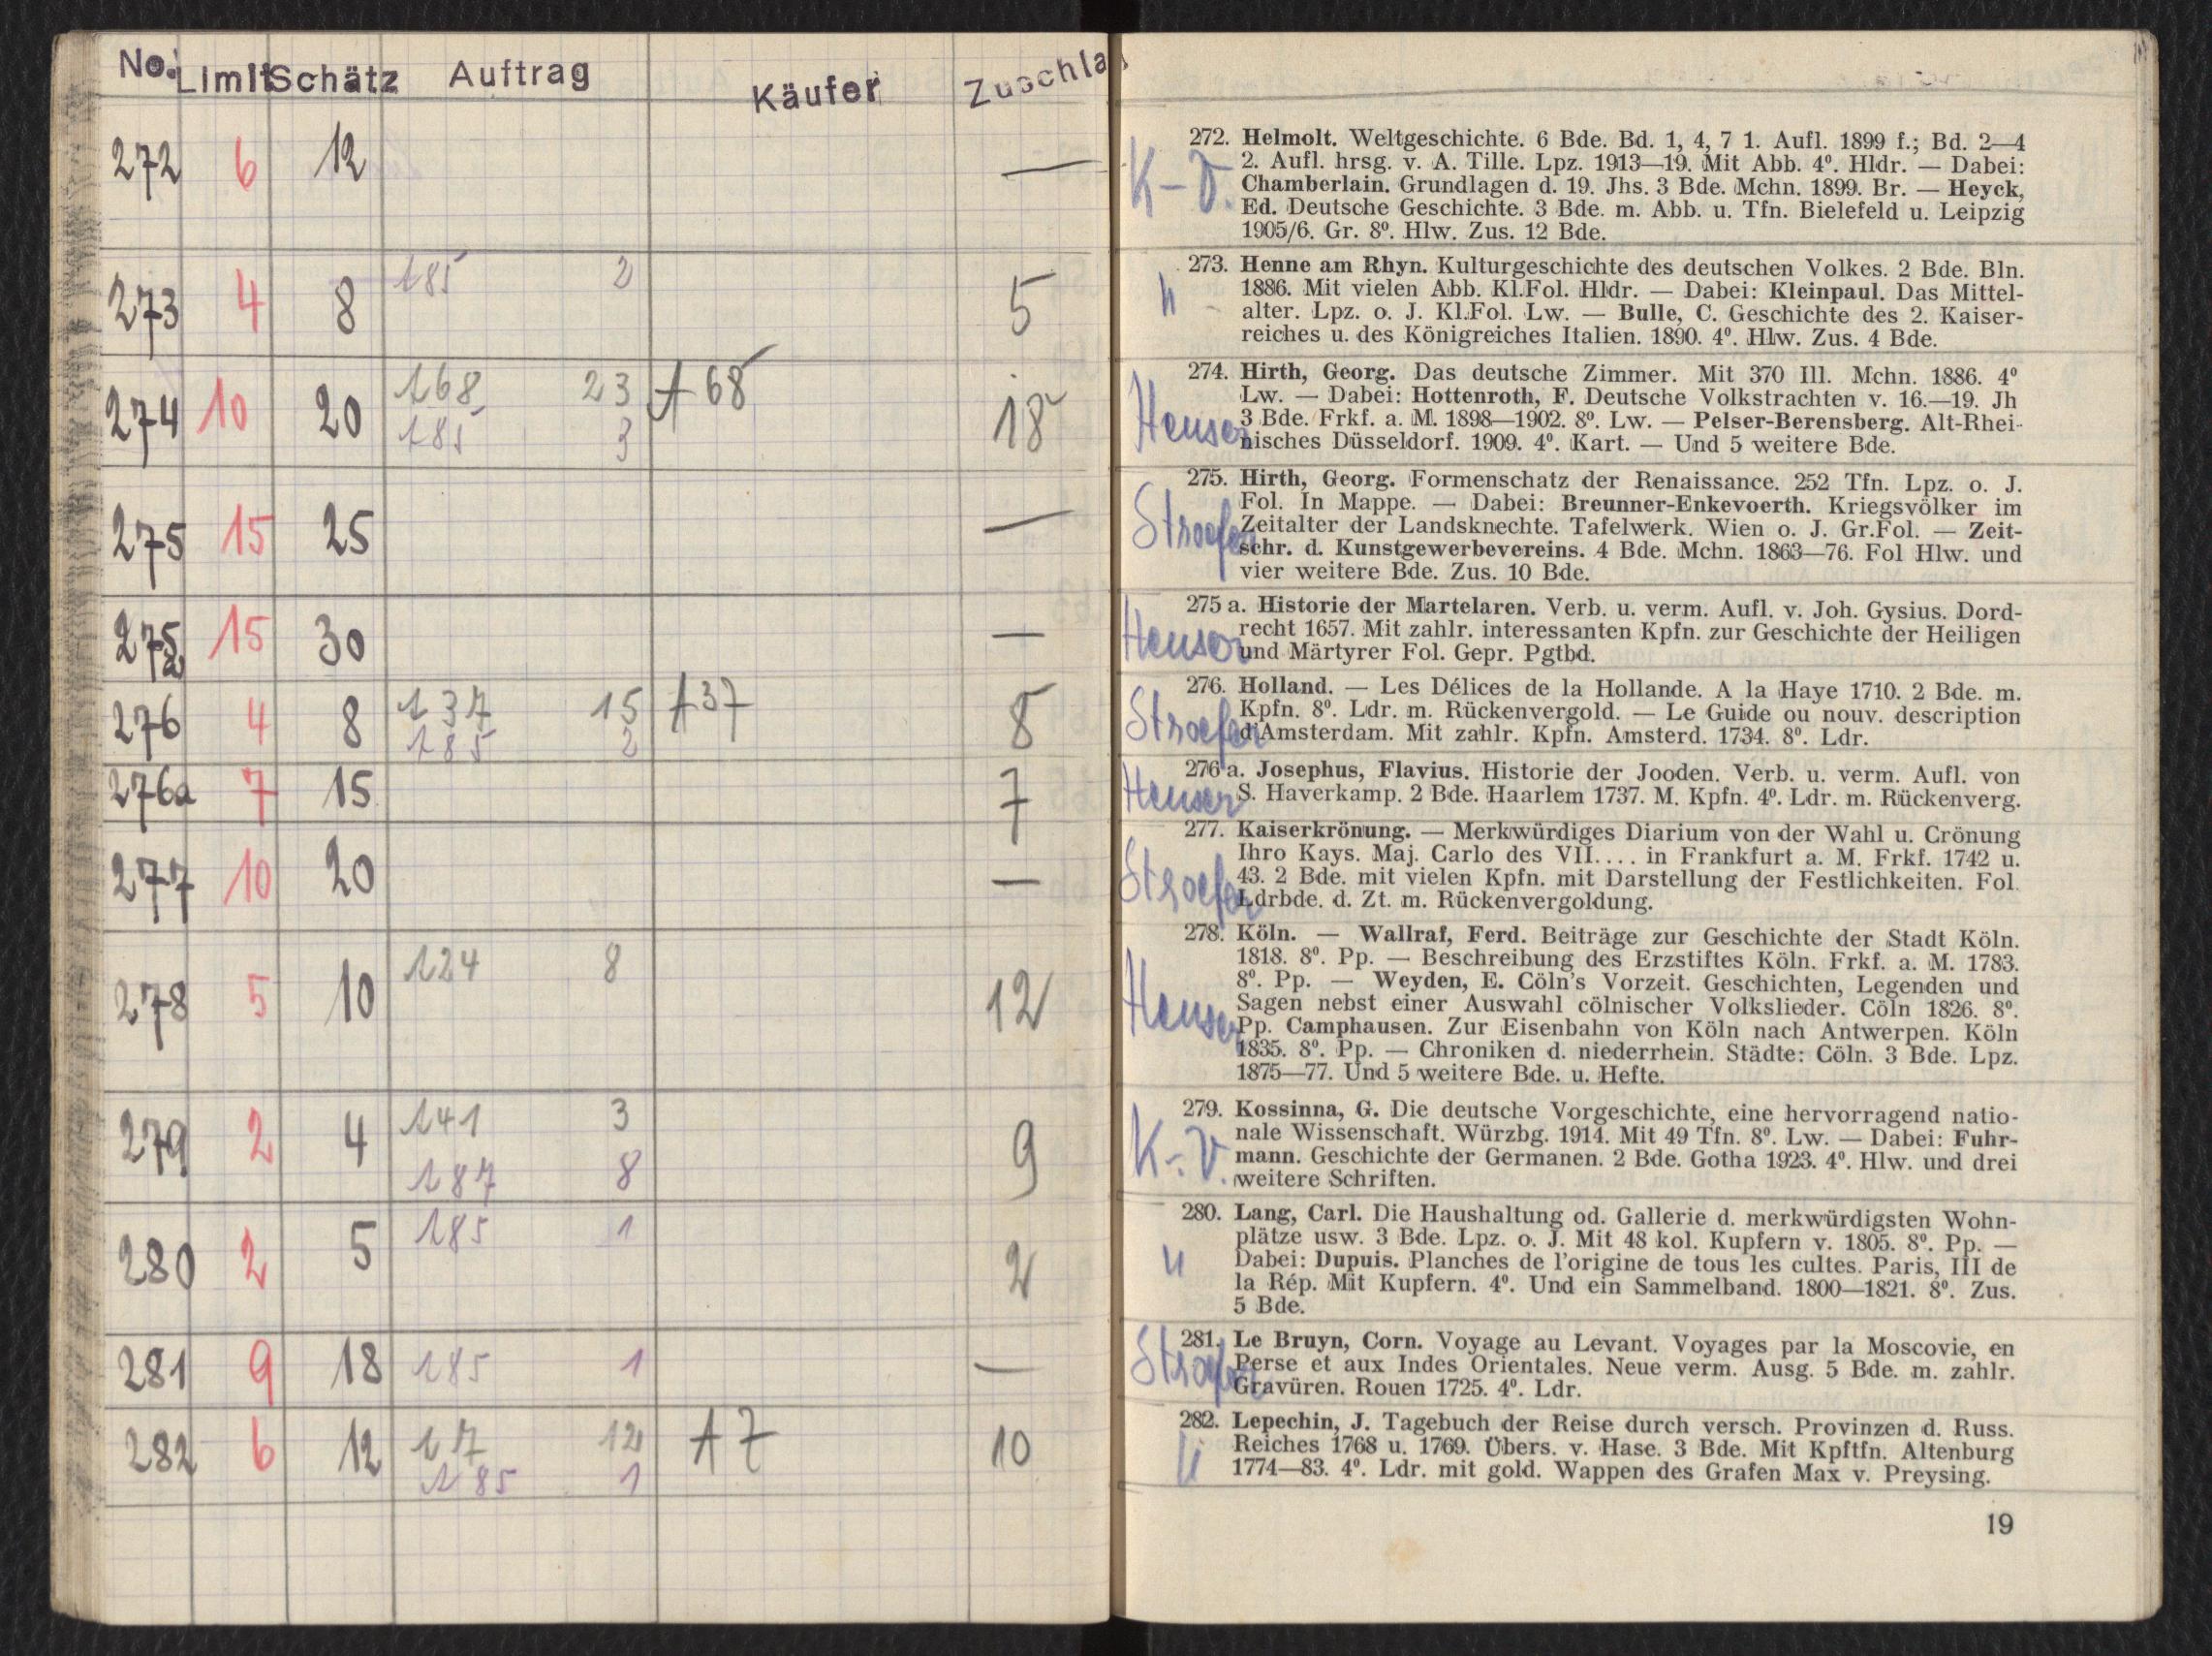 No. Limit Schätz Auftrag Käufer Zuschla
272 6 12 —
273 4 8 185 2 5
274 10 20 168 23 A 68 18
185 3
275 15 25 —
275a 15 30 —
276 4 8 137 15 A 37 8
185 2
276a 7 15 7
277 10 20 —
278 5 10 124 8 12
279 2 4 141 3 9
187 8
280 2 5 185 1 2
281 9 18 185 1 —
282 6 12 17 12 A 7 10
185 1
272. Helmolt. Weltgeschichte. 6 Bde. Bd. 1, 4, 7 1. Aufl. 1899 f.; Bd. 2—4
K-V. 2. Aufl. hrsg. v. A. Tille. Lpz. 1913—19. Mit Abb. 4º. Hldr. — Dabei:
Chamberlain. Grundlagen d. 19. Jhs. 3 Bde. Mchn. 1899. Br. — Heyck,
Ed. Deutsche Geschichte. 3 Bde. m. Abb. u. Tfn. Bielefeld u. Leipzig
1905/6. Gr. 8º. Hlw. Zus. 12 Bde.
273. Henne am Rhyn. Kulturgeschichte des deutschen Volkes. 2 Bde. Bln.
1886. Mit vielen Abb. Kl.Fol. Hldr. — Dabei: Kleinpaul. Das Mittel-
alter. Lpz. o. J. Kl.Fol. Lw. — Bulle, C. Geschichte des 2. Kaiser-
reiches u. des Königreiches Italien. 1890. 4º. Hlw. Zus. 4 Bde.
274. Hirth, Georg. Das deutsche Zimmer. Mit 370 Ill. Mchn. 1886. 4º
Lw. — Dabei: Hottenroth, F. Deutsche Volkstrachten v. 16.—19. Jh
Heuser 3 Bde. Frkf. a. M. 1898—1902. 8º. Lw. — Pelser-Berensberg. Alt-Rhei-
nisches Düsseldorf. 1909. 4º. Kart. — Und 5 weitere Bde.
275. Hirth, Georg. Formenschatz der Renaissance. 252 Tfn. Lpz. o. J.
Fol. In Mappe. — Dabei: Breunner-Enkevoerth. Kriegsvölker im
Stroefer Zeitalter der Landsknechte. Tafelwerk. Wien o. J. Gr.Fol. — Zeit-
schr. d. Kunstgewerbevereins. 4 Bde. Mchn. 1863—76. Fol Hlw. und
vier weitere Bde. Zus. 10 Bde.
275 a. Historie der Martelaren. Verb. u. verm. Aufl. v. Joh. Gysius. Dord-
recht 1657. Mit zahlr. interessanten Kpfn. zur Geschichte der Heiligen
Heuser und Märtyrer Fol. Gepr. Pgtbd.
276. Holland. — Les Délices de la Hollande. A la Haye 1710. 2 Bde. m.
Kpfn. 8º. Ldr. m. Rückenvergold. — Le Guide ou nouv. description
Stroefer d'Amsterdam. Mit zahlr. Kpfn. Amsterd. 1734. 8º. Ldr.
276 a. Josephus, Flavius. Historie der Jooden. Verb. u. verm. Aufl. von
Heuser S. Haverkamp. 2 Bde. Haarlem 1737. M. Kpfn. 4º. Ldr. m. Rückenverg.
277. Kaiserkrönung. — Merkwürdiges Diarium von der Wahl u. Crönung
Ihro Kays. Maj. Carlo des VII.... in Frankfurt a. M. Frkf. 1742 u.
Stroefer 43. 2 Bde. mit vielen Kpfn. mit Darstellung der Festlichkeiten. Fol.
Ldrbde. d. Zt. m. Rückenvergoldung.
278. Köln. — Wallraf, Ferd. Beiträge zur Geschichte der Stadt Köln.
1818. 8º. Pp. — Beschreibung des Erzstiftes Köln. Frkf. a. M. 1783.
8º. Pp. — Weyden, E. Cöln's Vorzeit. Geschichten, Legenden und
Sagen nebst einer Auswahl cölnischer Volkslieder. Cöln 1826. 8º.
Heuser Pp. Camphausen. Zur Eisenbahn von Köln nach Antwerpen. Köln
1835. 8º. Pp. — Chroniken d. niederrhein. Städte: Cöln. 3 Bde. Lpz.
1875—77. Und 5 weitere Bde. u. Hefte.
279. Kossinna, G. Die deutsche Vorgeschichte, eine hervorragend natio-
nale Wissenschaft. Würzbg. 1914. Mit 49 Tfn. 8º. Lw. — Dabei: Fuhr-
K-V. mann. Geschichte der Germanen. 2 Bde. Gotha 1923. 4º. Hlw. und drei
weitere Schriften.
280. Lang, Carl. Die Haushaltung od. Gallerie d. merkwürdigsten Wohn-
plätze usw. 3 Bde. Lpz. o. J. Mit 48 kol. Kupfern v. 1805. 8º. Pp. —
Dabei: Dupuis. Planches de l'origine de tous les cultes. Paris, III de
la Rép. Mit Kupfern. 4º. Und ein Sammelband. 1800—1821. 8º. Zus.
5 Bde.
281. Le Bruyn, Corn. Voyage au Levant. Voyages par la Moscovie, en
Stroefer Perse et aux Indes Orientales. Neue verm. Ausg. 5 Bde. m. zahlr.
Gravüren. Rouen 1725. 4º. Ldr.
282. Lepechin, J. Tagebuch der Reise durch versch. Provinzen d. Russ.
Reiches 1768 u. 1769. Übers. v. Hase. 3 Bde. Mit Kpftfn. Altenburg
1774—83. 4º. Ldr. mit gold. Wappen des Grafen Max v. Preysing.
19